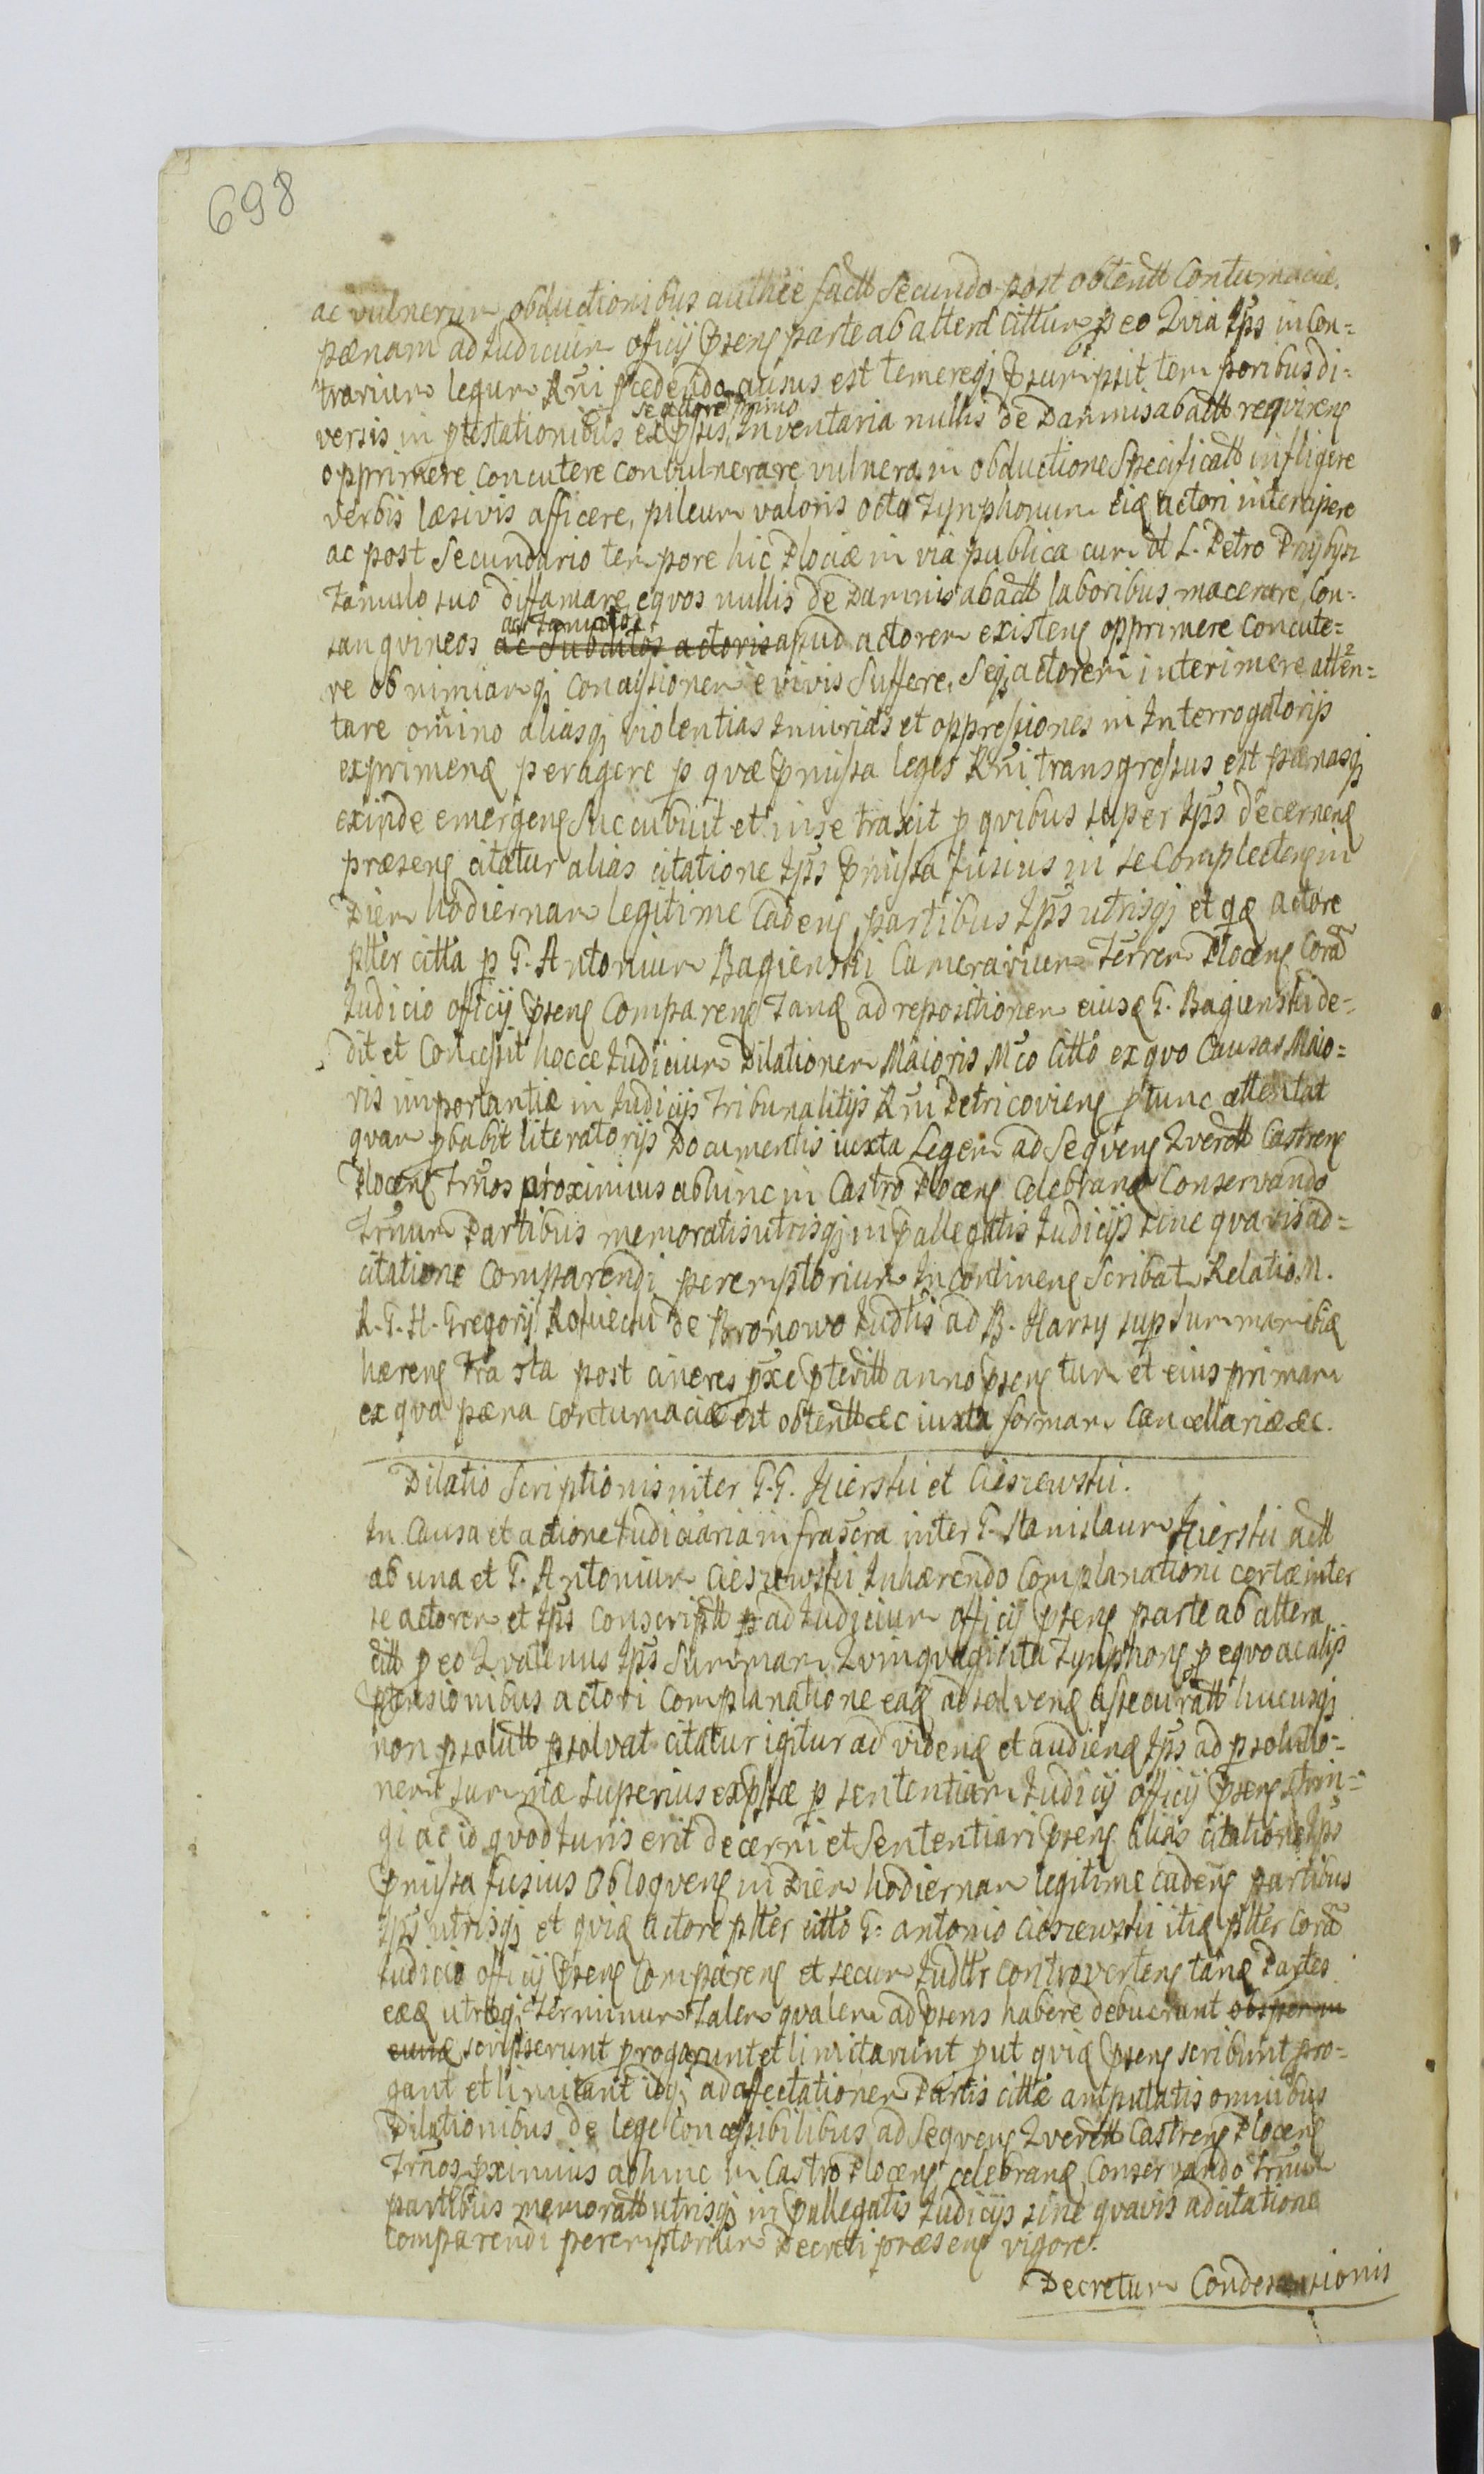 698
ac vulnerum obductionibus authēe factt Secundo post obtentt Contumaciæ
pænam ad Judicium officij Psens parte ab altera cittum p eo Qvia Jps in Con=
trarium legum Rñi pcedendo ausus est temereqj Psumpsit temporibus di=
se actore primo
versis in ptestationibus expssis Inventaria nullis de Damnis abattt reqvirens
opprimere concutere convulnerare vulnera in obductione Specificatt infligere
verbis læsivis afficere, pileum valoris octo Tynphonum eiq actori intercipere
ac post Secundario tempore hic Plociæ in via publica cum dt L. Petro
Famulo suo diffamare, eqvos nullis de Damnis abactt laboribus macerare, Con=
ac Famulos
sangvineos ac Subditos actoris apud actorem existens opprimere concute=
re ob nimiamqj concussionem e vivis Suffere, Seqj actorem interimere atten=
tare omino aliasqj violentias Iniurias et oppressiones in Interrogatorijs
exprimenq peragere p qvæ Pmissa leges Rñi transgressus est pænasqj
exinde emergens Succubuit et in se traxit p qvibus super Jps decernenq
præsens citatur alias citatione Jps Pmissa fusius in se Complectens in
Diem hodiernam legitime Cadens, partibus Jps utrisqj et qæ actore
plter citta p G. Antonium Bagienski Camerarium Terrem Plocens Corā
Judicio officij Psens Comparens Tanq ad repositionem eiusq G. Bagienski de=
dit et Concessit hocce Judicium Dilationem Maioris Mco Citto ex qvo Causas Maio=
ris importantiæ in Judicijs Tribunalitijs Rñi Petricoviens ptunc attentat
qvam pbabit literatorijs Documentis iuxta Legem ad Seqvens Qverett Castrens
Plocens Trños proximius abhinc in Castro Plocens Celebranq Conservando
Trñum Partibus memoratis utrisqj in Pallegatis Judicijs sine qvavis ad=
citatione Comparendi peremptorium In Continens Scribat Relatio M.
R. G. H. Gregorij de Bronowo Judtis ad B. Harsy sup Summam ibiq
hærens Fra 5ta post cineres pxe Pteritt anno Psens tum et eius primam
ex qva pæna contumaciæ est obtentt &c iuxta formam Cancellariæ &c.
Dilatio Scriptionis inter G.G. Kierski et Cieszewski.
In Causa et actione Judiciaria infrascra inter G. Stanislaum Kierski actt
ab una et G. Antonium Cieszewski Inhærendo Complanationi certæ inter
se actorem et Jps conscriptt p ad Judicium officij Psens parte ab altera
citt p eo Qvatenus Jps Summam Qvinqvaginta Tynphons p eqvo ac alijs
Ptensionibus actori Complanatione eaq adsolvenq assecuratt hucusqj
non psolutt psolvat citatur igitur ad videnq et audienq Jps ad psolutio=
nem summæ Superius expssæ p sententiam Judicij officij Psens strin=
gi ac id qvod Juris erit decerni et Sententiari Psens alias citatione Jps
Pmissa fusius Obloqvens in Diem hodiernam legitime cadens partibus
Jps utrisqj et qviq actore plter citto G. antonio Cieszewski itiq plter Corā
Judicio officij Psens Comparens et secum Judttr controvertens tanq Partes
eæq utræqj Terminum Talem qvalem ad Psens habere debuerunt
eunq scripserunt progarunt et limitarunt put qviq Psens scribunt pro=
gant et limitant idqj ad affectationem Partis cittæ amputatis omnibus
Dilationibus de lege Concessibilibus ad Seqvens Qverett Castrens Plocens
Trños pximius abhinc in Castro Plocens celebranq Conservando Trñum
partibus memoratt utrisqj in Pallegatis Judicijs sine qvavis adcitatione
comparendi peremptorium Decreti præsens vigore.
Decretum Condescensionis